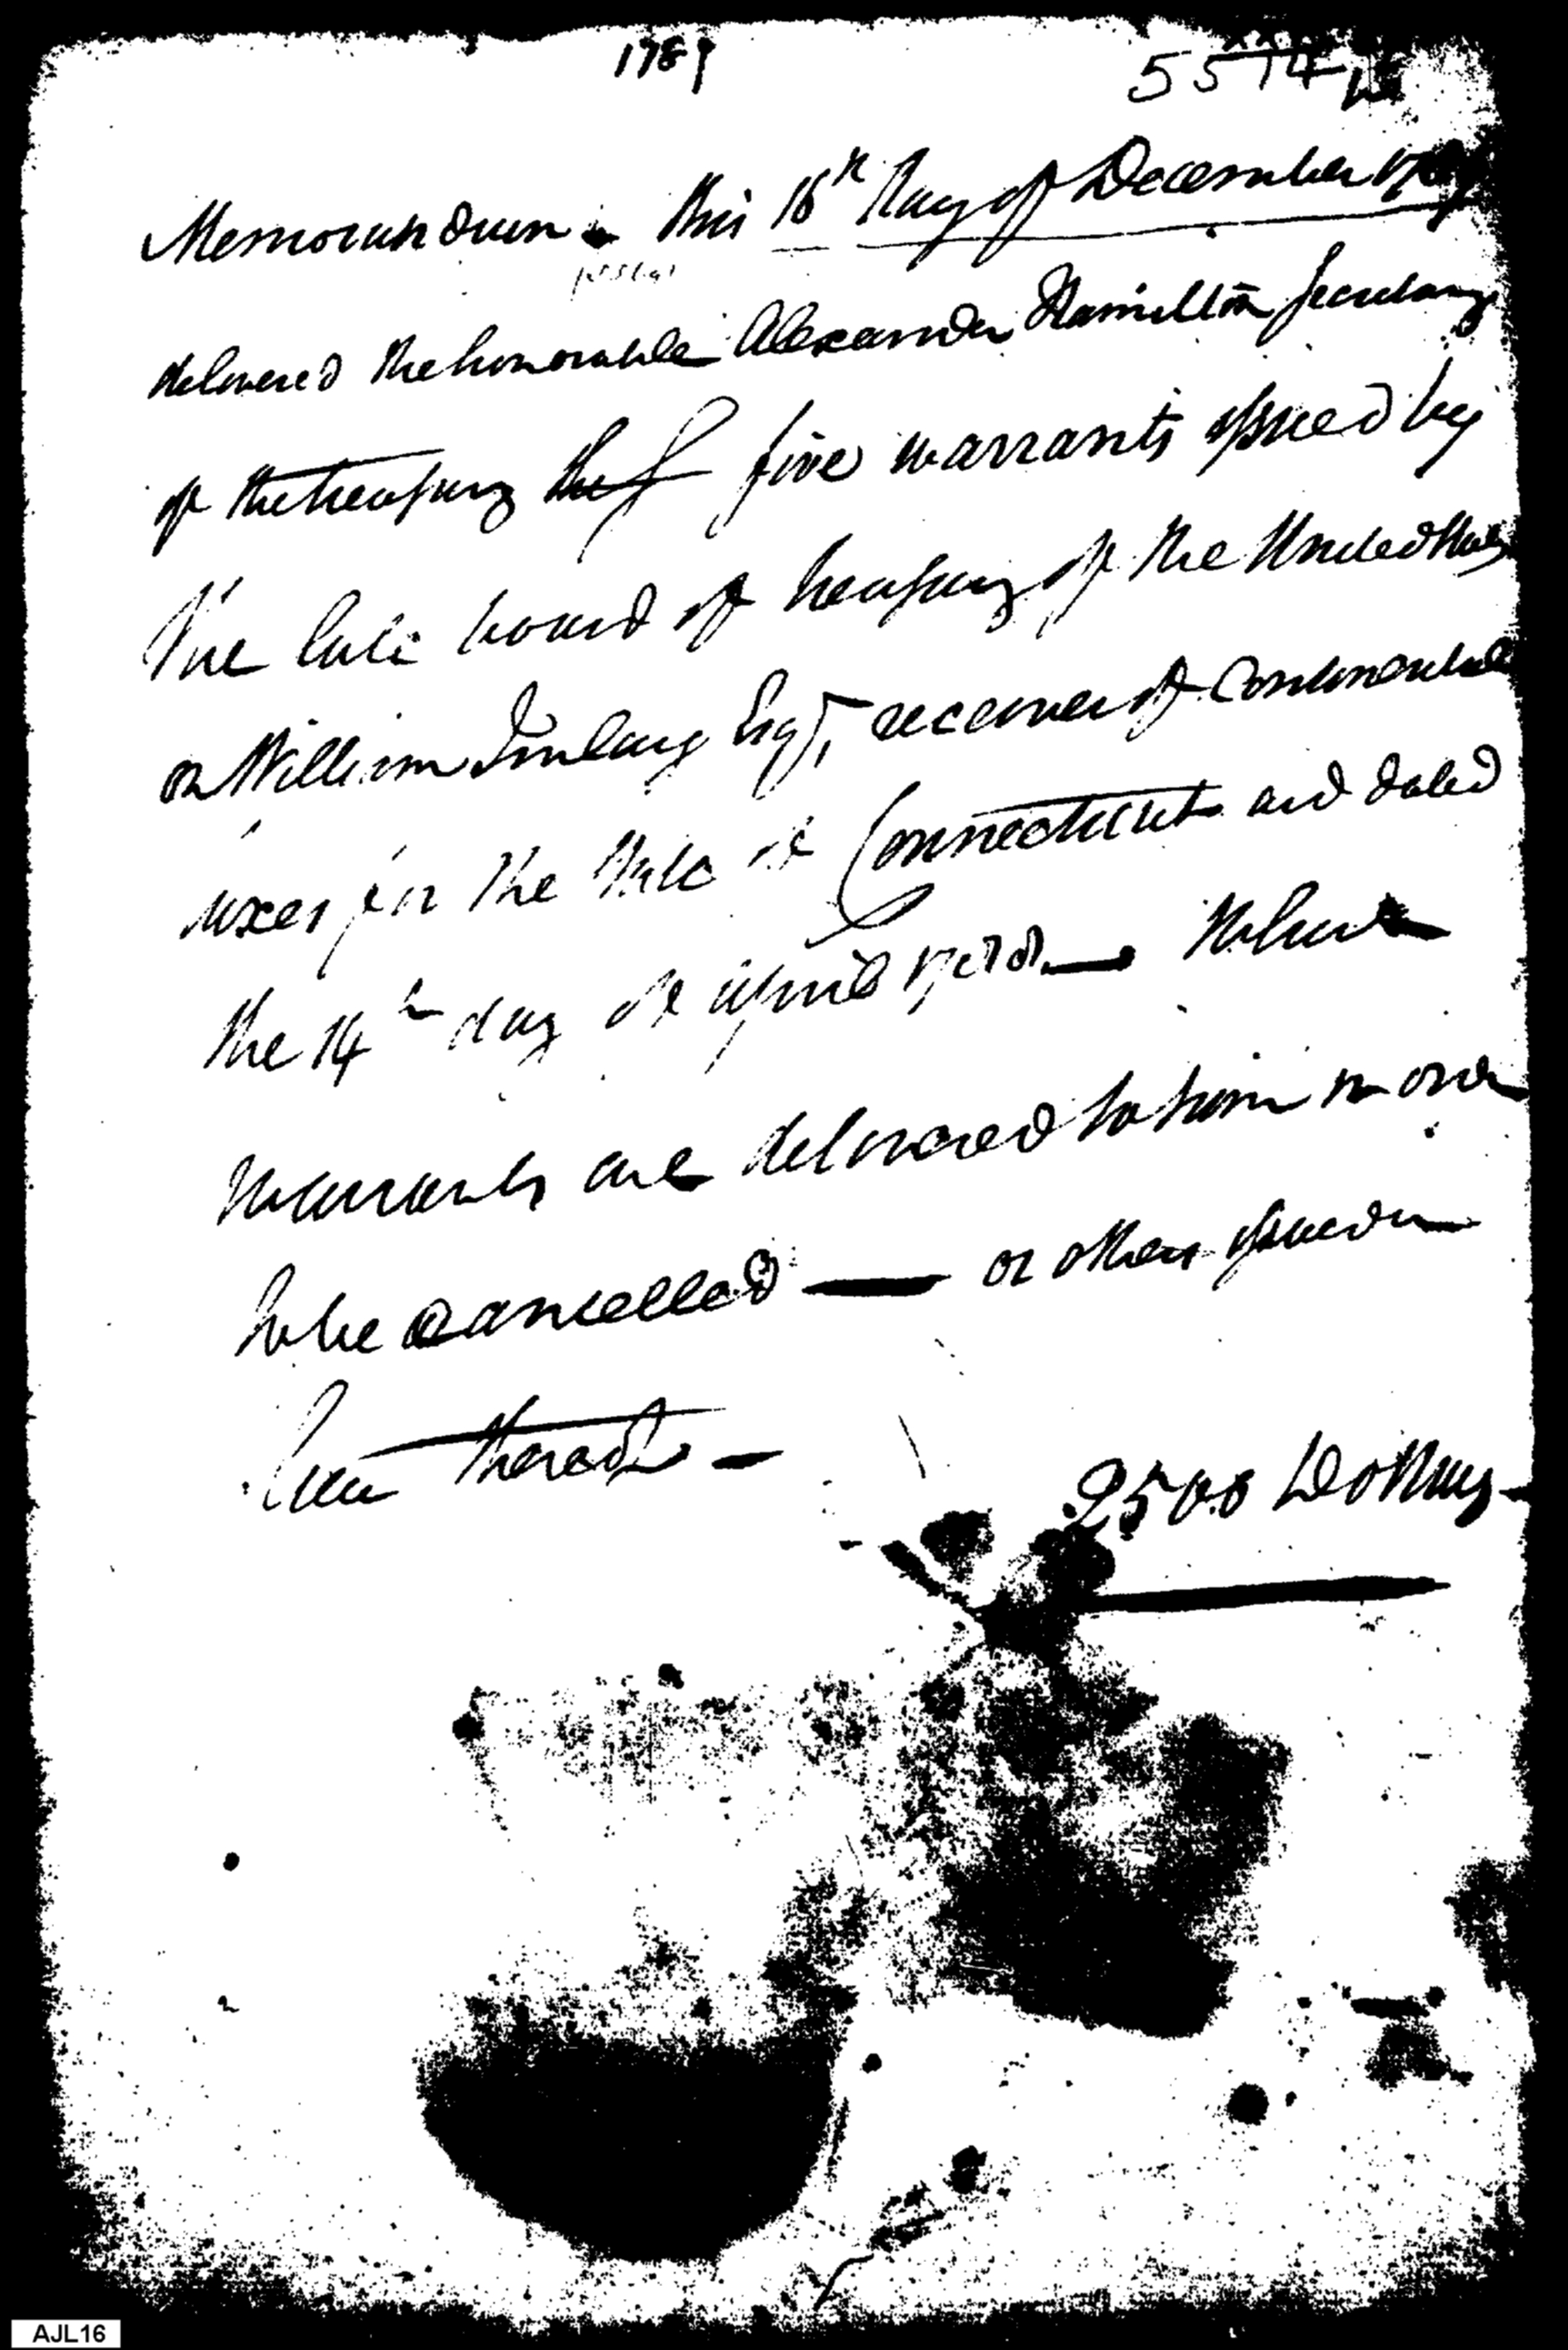 1789
5574
Memorandum this 16th day of December 1789
delivered the honorable Alexander Hamilton Secretary
of the treasury the five warrants issued by
the late board of treasury of the United States
on William Imlay Esqr, receiver of Continental
taxes for the State of Connecticut and dated
the 14th day of april 1788. — Which
Warrants are delivered to him in order
to be Cancelled — or others issued in
lieu thereof —
2500 Dollars —
AJL16